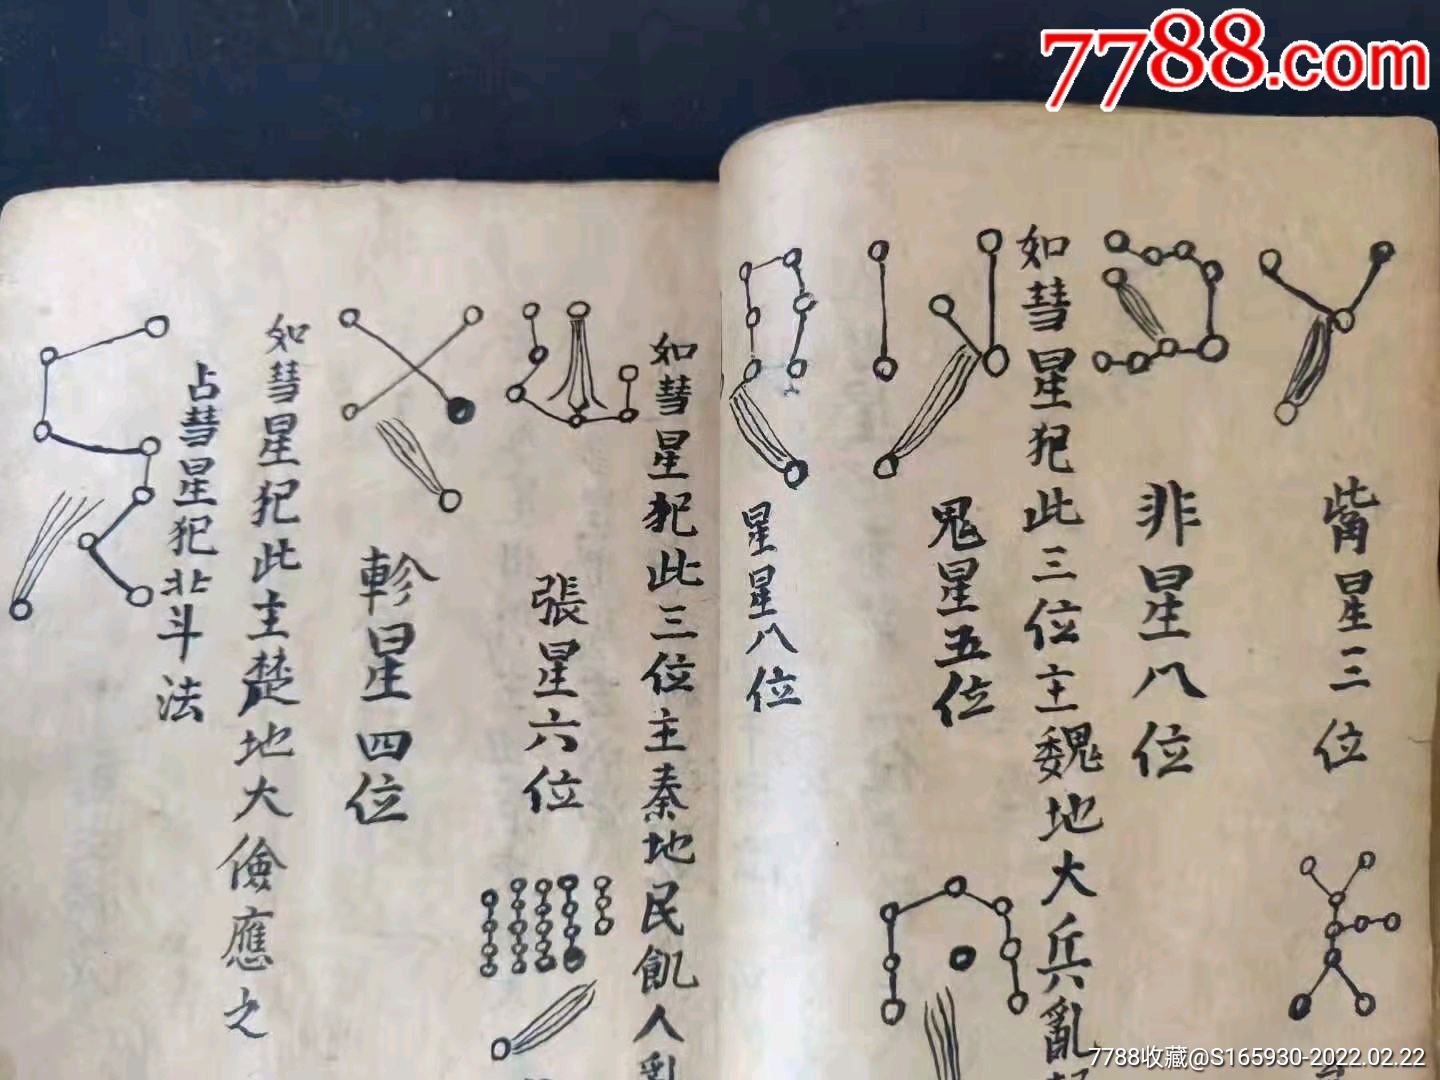 7788.com
觜星三位
非星八位
如彗星犯此三位主魏地大兵亂
鬼星五位
星星八位
如彗星犯此三位主秦地民飢人亂
張星六位
軫星四位
如彗星犯此主楚地大儉應之
占彗星犯北斗法
7788收藏@S165930-2022.02.22